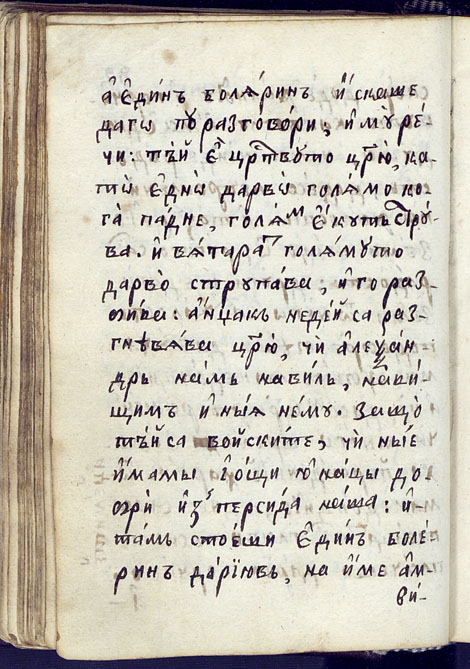 а҆ е҆ди́нъ болѧ́ринъ и҆скаше
дагѡ поразгово́ри, и҆ мꙋ ре́-
чи: тъй е҆ црⷭ҇твото цр҃ю, ка-
тѡ̀ е҆дно̀ дарво̀ голѧ́мо ко
га̀ па́дне, голѧ́м е҆ кꙋтъ стрꙋ́-
ва. и҆ вѧ́тарат голѧ́мото
дарво̀ стропа́ва, и҆ го раз-
жи́ва: а҆нцакъ неде́й са раз-
гнѣвѧ́ва цр҃ю̀, чѝ а҆леѯа́н
дръ на́мъ нави́лъ, на́ви-
щимъ и҆ ны́ѧ не́мꙋ. защо̀
тъ́й са войски́те, чѝ ны́е
и҆́мамы і҆о́щи ю҆на́цы до-
жрѝ и҆з персида на́ша: и҆-
та́мъ стое́ши е҆ди́нъ боле́
ринъ да́рїювъ, на и҆́ме а҆м-
ви́-